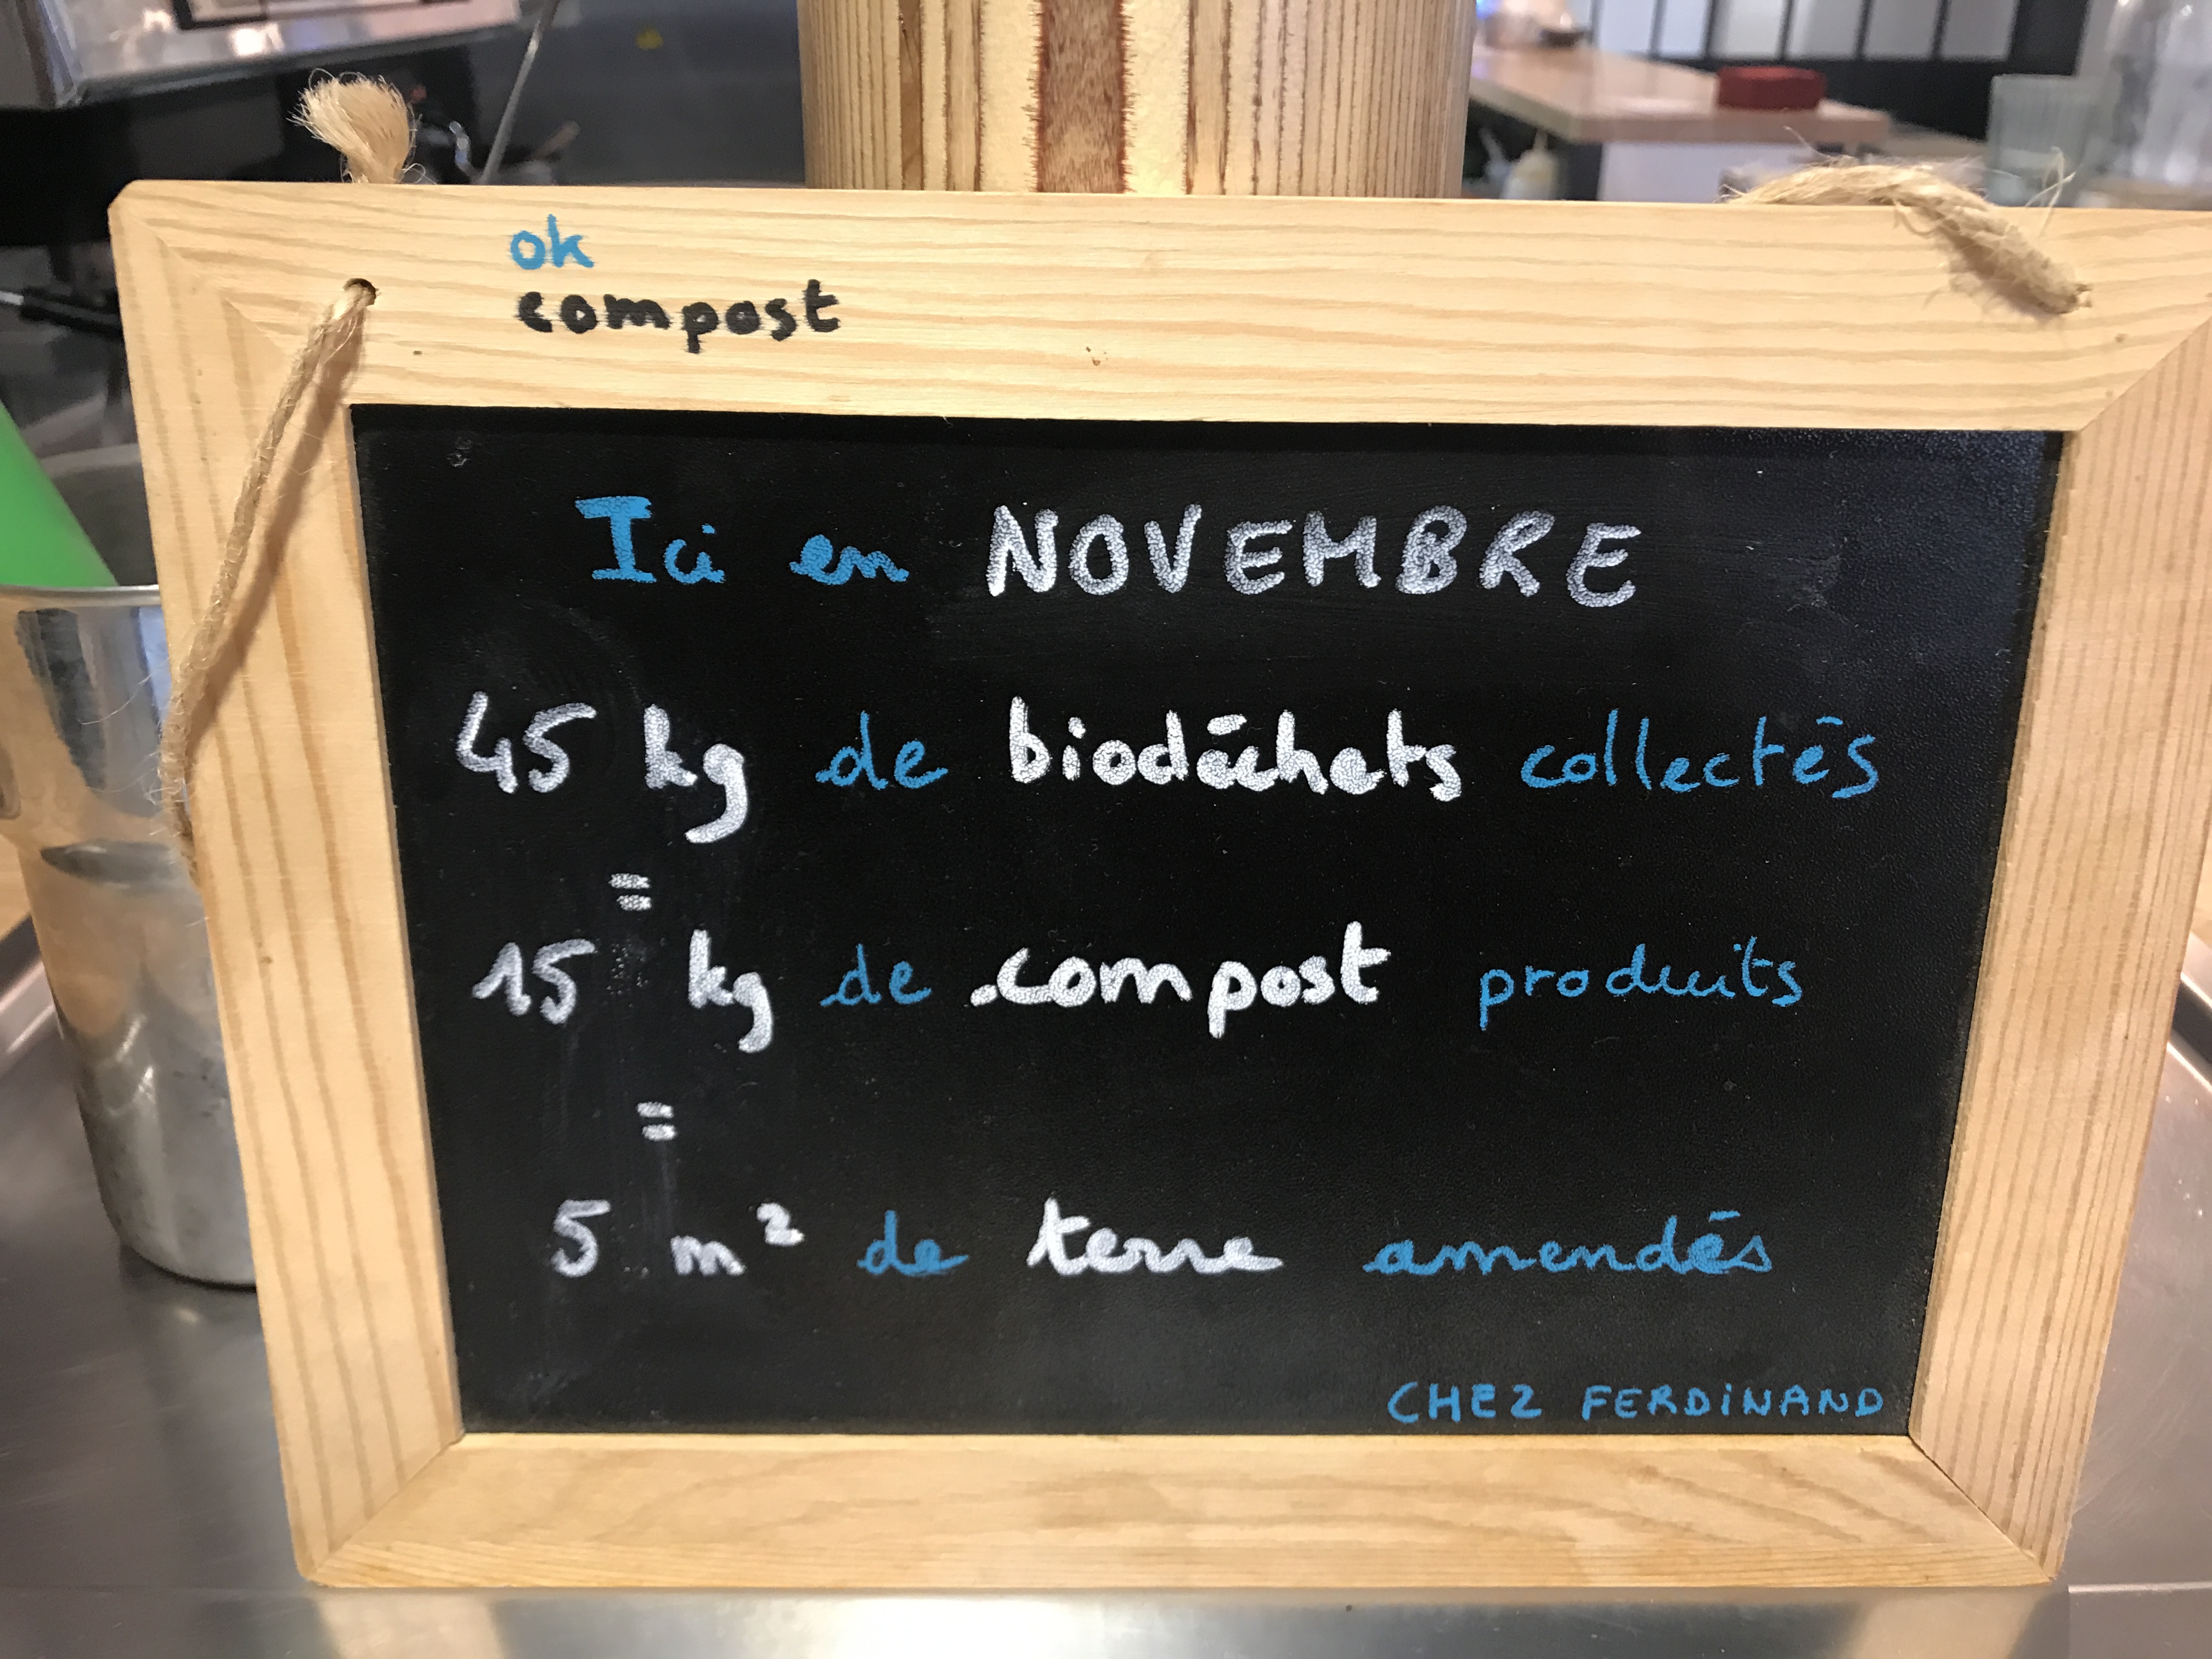 ok
compost
Ici en NOVEMBRE
45 kg de biodéchets collectés
=
15 kg de compost produits
=
5 m² de terre amendés
CHEZ FERDINAND